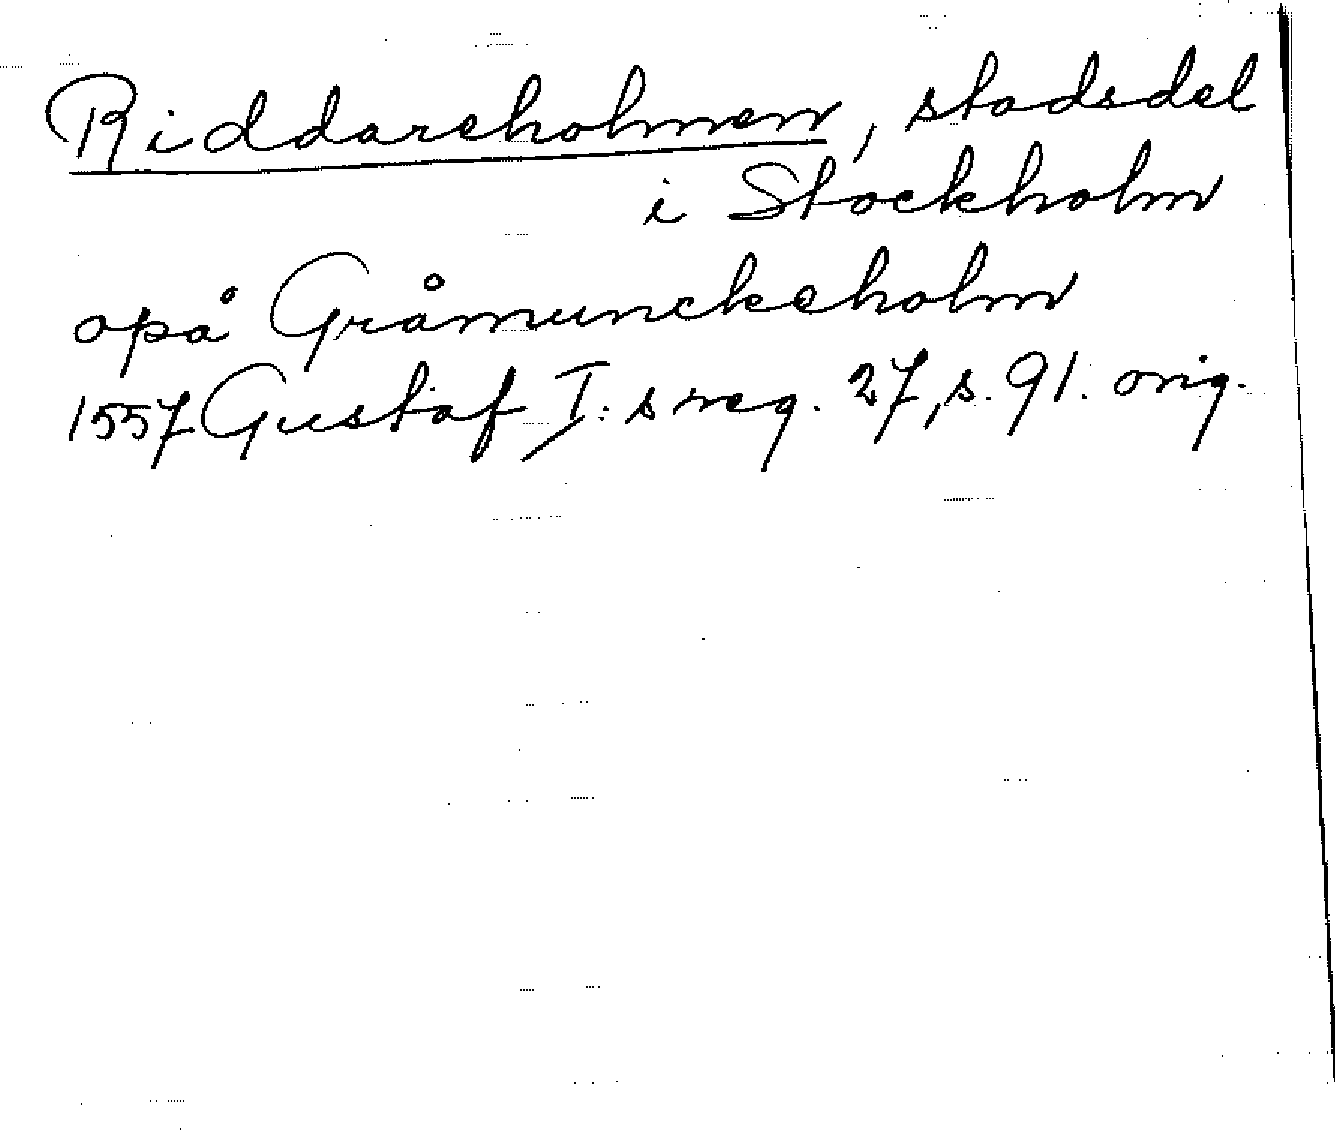 Riddareholmen, stadsdel
i Stockholm
opå Gråmunckeholm
1557 Gustaf I: s reg. 27, s. 91. orig.